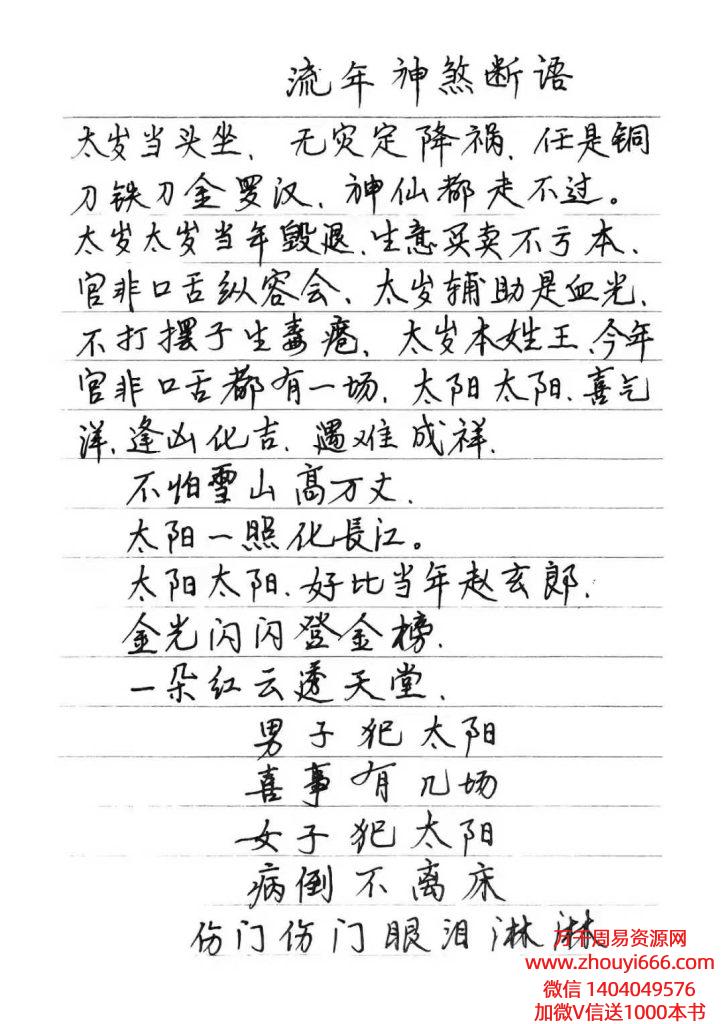 流年神煞断语
太岁当头坐、无灾定降祸、任是铜
刀铁刀金罗汉、神仙都走不过。
太岁太岁当年毁退、生意买卖不亏本、
官非口舌纵容会、太岁辅助是血光、
不打摆子生毒疮、太岁本姓王、今年
官非口舌都有一场、太阳太阳、喜气
洋、逢凶化吉、遇难成祥、
不怕雪山高万丈、
太阳一照化長江。
太阳太阳、好比当年赵玄郎、
金光闪闪登金榜、
一朵红云透天堂、
男子犯太阳
喜事有几场
女子犯太阳
病倒不离床
伤门伤门眼泪淋淋
万千周易资源网
www.zhouyi666.com
微信 1404049576
加微V信送1000本书